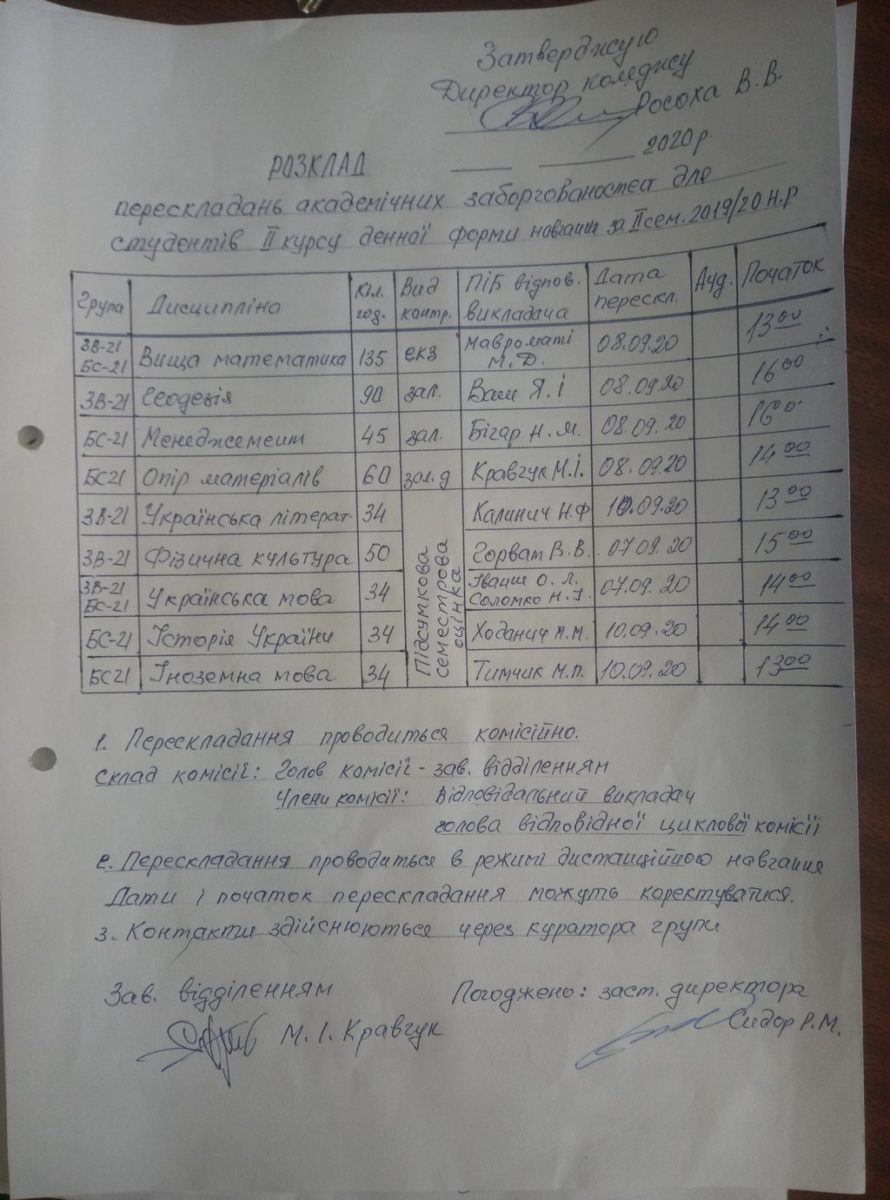 Затверджую
Директор коледжсу
Росоха В.В.
2020р
РОЗКЛАД
перескладань академічних заборгованостей для
студентів II курсу денної форми навчання за II сем. 2019/20 Н.Р
Група Дисципліна Кіл. год. Вид контр. ПІБ відпов. викладача Дата перескл. Ауд. Початок
ЗВ-21 БС-21 Вища математика 135 екз Мавроматі М.Д. 08.09.20 13 00
ЗВ-21 Геодезія 90 зал. Ваш Я.І 08.09.20 16 00
БС-21 Менеджсмент 45 зал. Бігар Н.М. 08.09.20 16 0
БС21 Опір матеріалів 60 зал.д Кравчук М.І. 08.09.20 14 00
ЗВ-21 Українська літерат. 34 Калинич Н.Ф 10.09.20 13 00
ЗВ-21 Фізична культура 50 Горват В.В. 07.09.20 15 00
ЗВ-21 БС-21 Українська мова 34 О.Л. Соломко Н.І. 07.09.20 14 00
БС-21 Історія України 34 Ходанич М.М. 10.09.20 14 00
БС21 Іноземна мова 34 Тимчик М.П. 10.09.20 13 00
Підсумкова семестрова оцінка
1. Перескладання проводиться комісійно.
Склад комісії: Голов комісії - зав. відділенням
Члени комісії: Відповідальний викладач
голова відповідної циклової комісії
2. Перескладання проводиться в режимі дистанційного навчання
Дати і початок перескладання можуть коректуватися.
3. Контакти здійснюються через куратора групи
Зав. відділенням Погоджено: заст. директора
М.І. Кравчук Сидор Р.М.